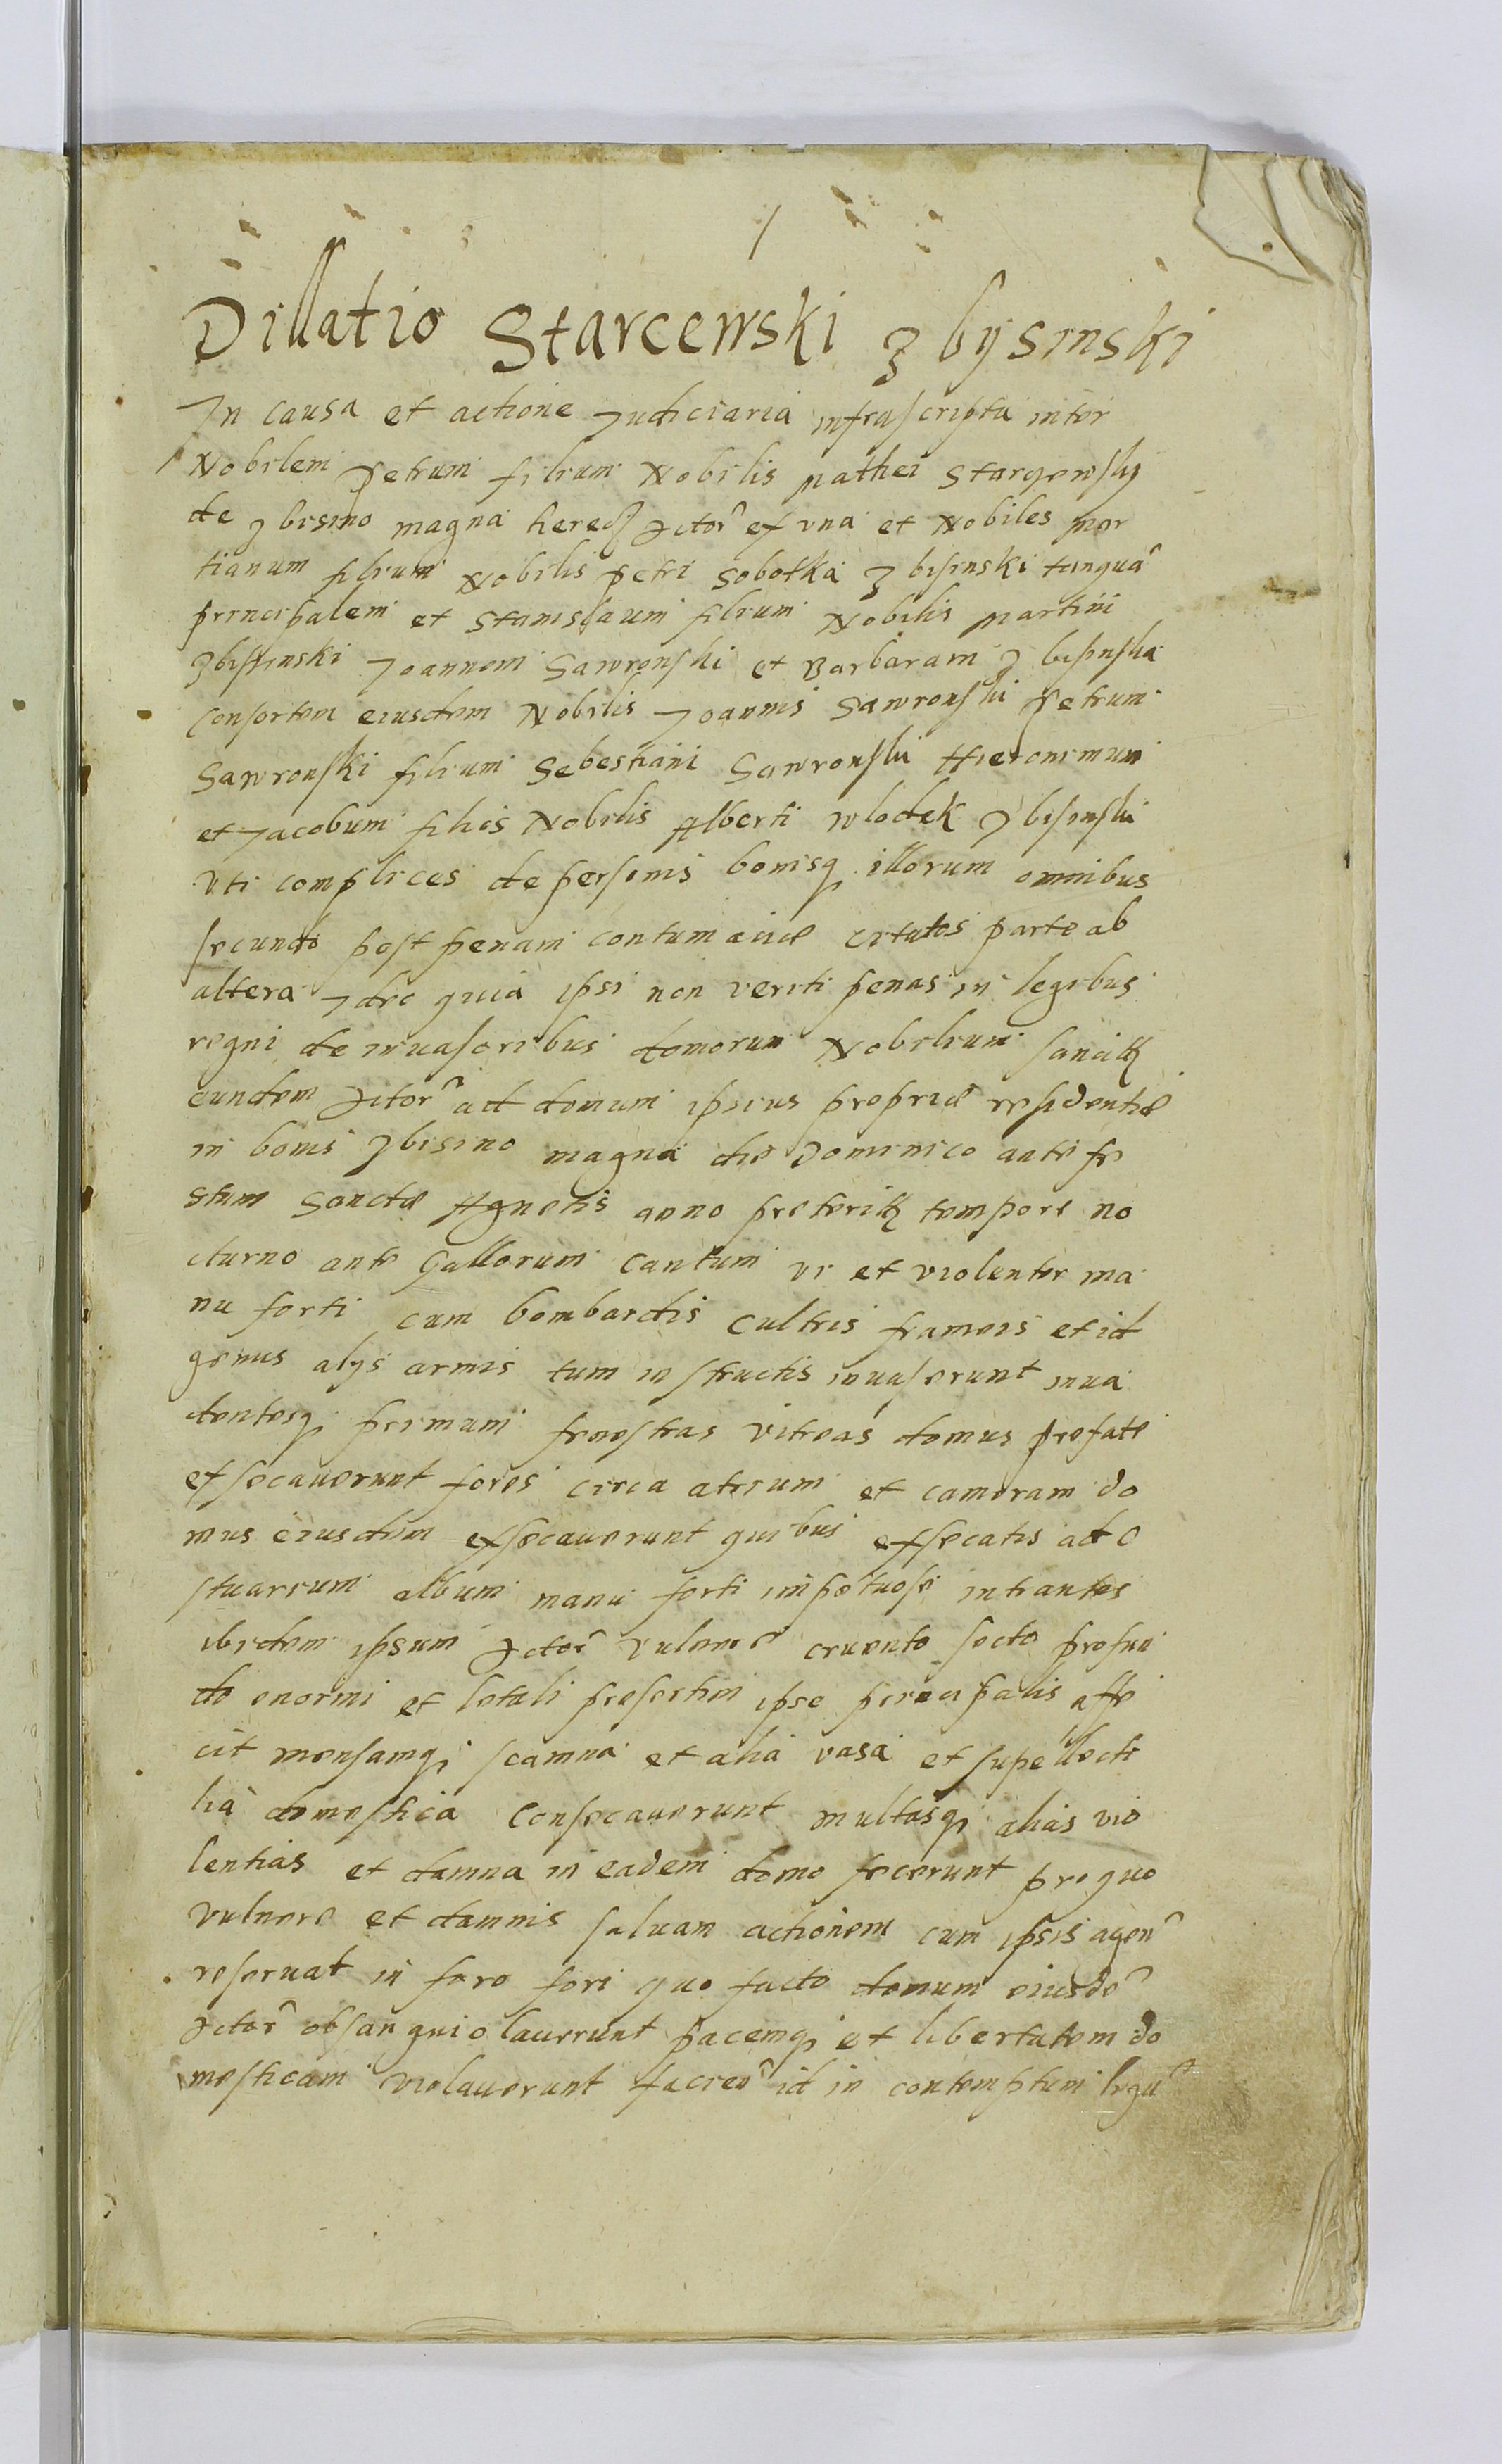 Dillatio Starcewski Zbysinski
In causa et actione Judiciaria infrascripta inter
Nobilem Petrum filium Nobilis Mathei Starczewsky
de Zbisino magna hered Actor ex una et Nobiles Mar
tianum filium Nobilis Petri Sobotka Zbisinski tanquā
principalem et Stanislaum filium Nobilis Martini
Zbisinski Joannem Gawronski et Barbaram Zbisinska
consortem eiusdem Nobilis Joannis Gawronski Petrum
Gawronski filium Sebestiani Gawronski Hieronimum
et Jacobum filios Nobilis Alberti Wlodek Zbisinski
uti complices de personis bonisq illorum omnibus
secundo post penam contumaciæ citatos parte ab
altera Idro quia ipsi non veriti penas in legibus
regni de invasoribus domorum Nobilium sancitz
eundem Actor ad domum ipsius propriæ residentiæ
in bonis Zbisino magna die Dominico ante fe
stum Sanctæ Agnetis anno preteritz tempore no
cturno ante Gallorum cantum vi et violenter ma
nu forti cum bombardis cultris frameis et id
genus alys armis tum instructis invaserunt inva
dentesq primum fenestras vitreas domus prefate
exsecaverunt fores circa atrium et cameram do
mus eiusdem exsecaverunt quibus exsecatis ad e
stuarium album manu forti impetuose intrantes
ibidem ipsum Actor vulnere cruento secto profun
do enormi et letali presertim ipse principalis affe
cit mensamq scamna et alia vasa et supellecti
lia domestica consecaverunt multasq alias vio
lentias et damna in eadem domo fecerunt pro quo
vulnere et damnis salvam actionem cum ipsis agen
reservat in foro fori quo facto domum eiusdē
Actor obsanguiolaverunt pacemq et libertatem do
mesticam violaverunt facien id in contemptum legū